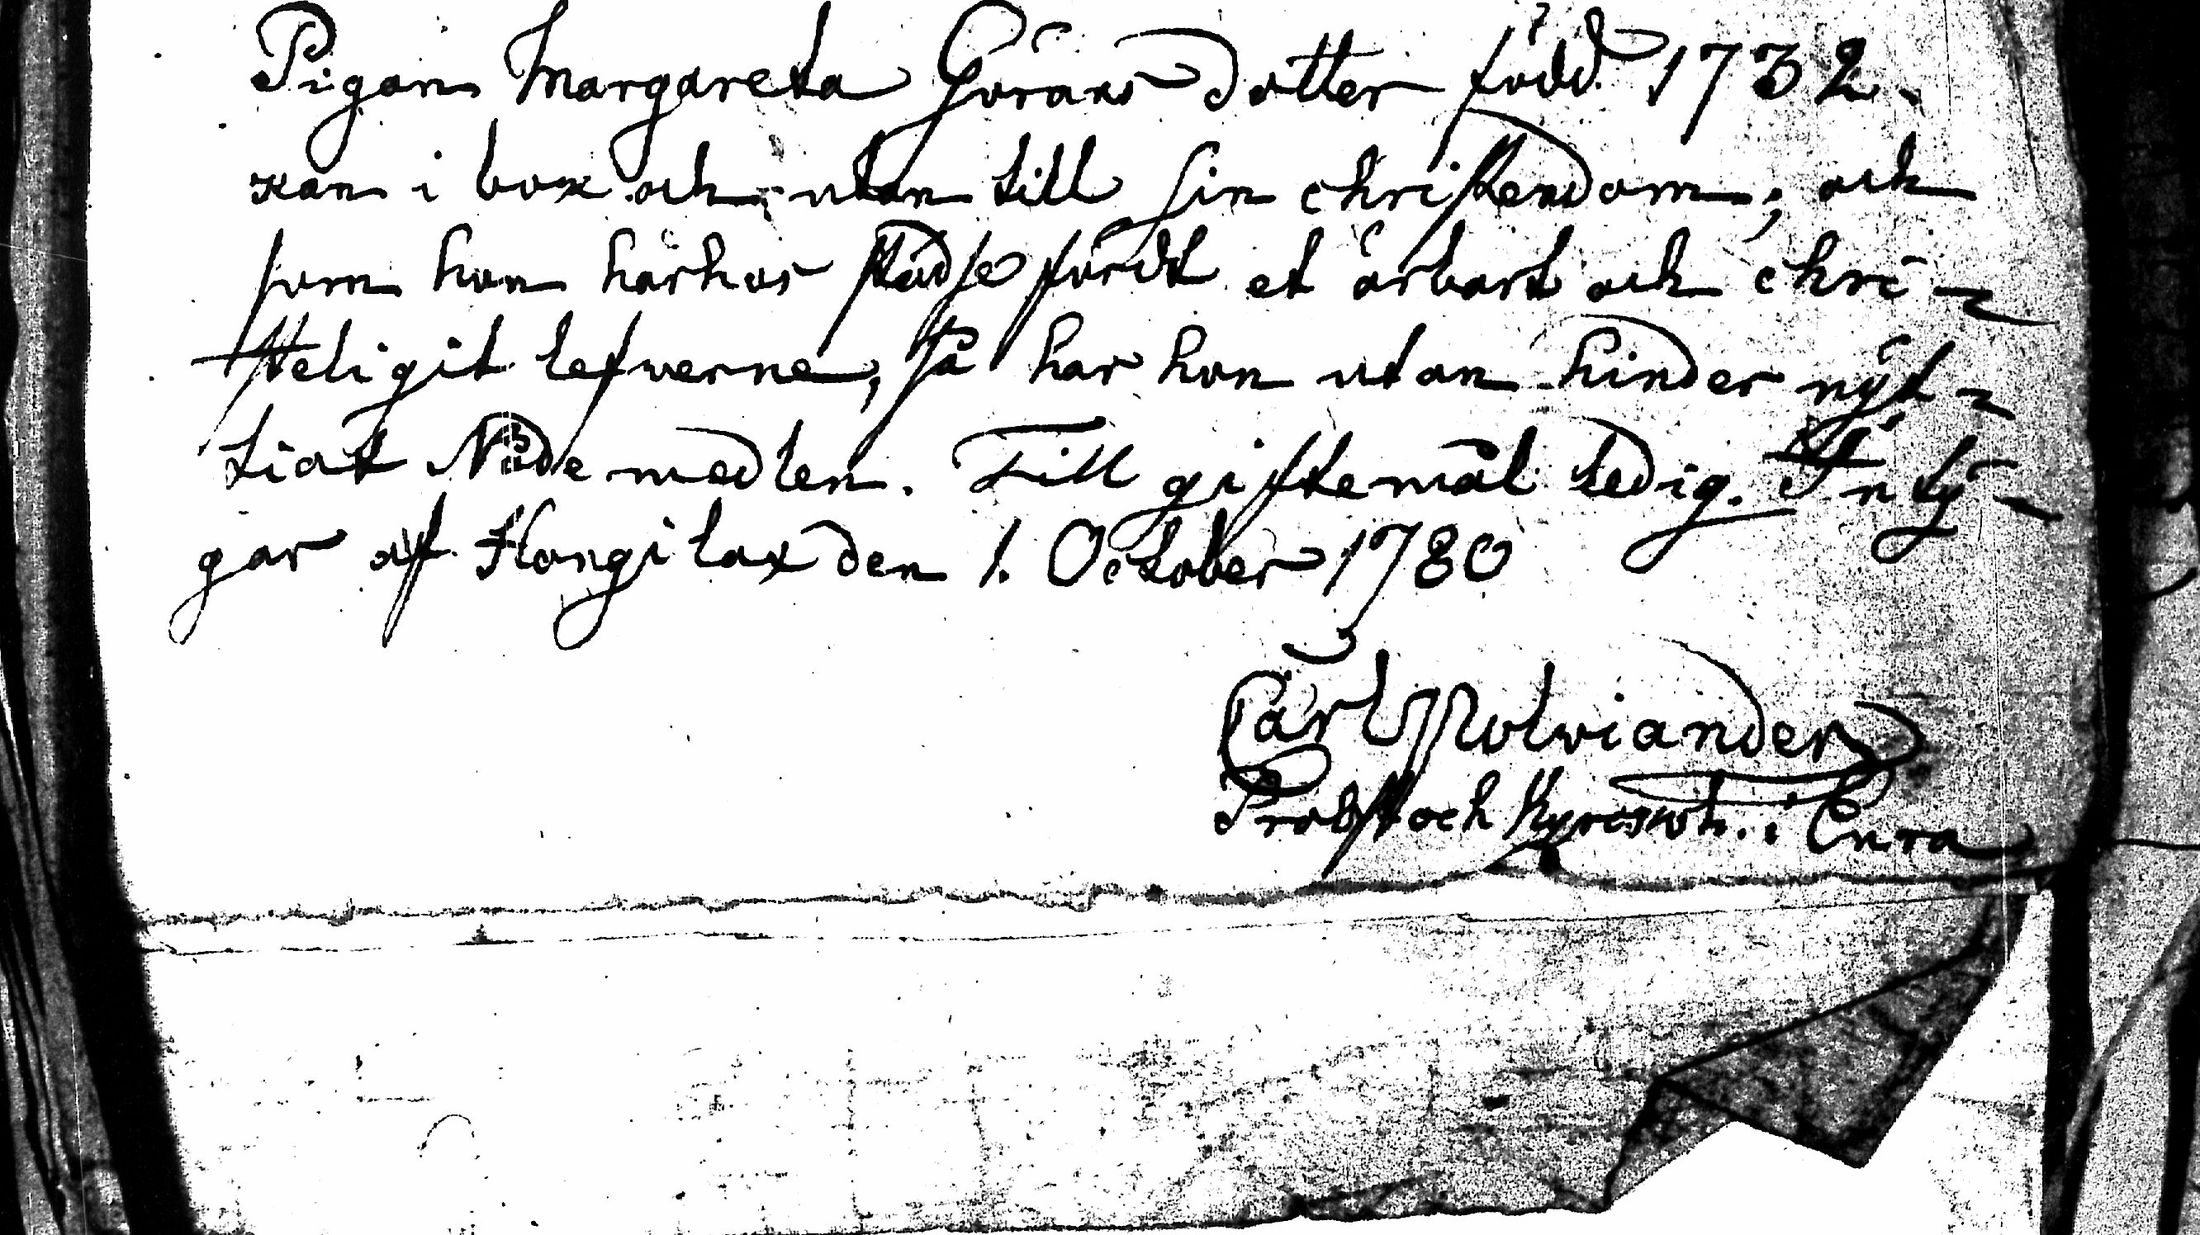 Pigan Margareta Görans dotter född 1732.
kan i bok och utan till sin christendom; och
som hon härhos städse fördt et ärbart och chri-
steligit lefwerne, så har hon utan hinder nyt-
tiat Nådemedlen. Till giftemål ledig. Inty-
gar af Kongilax den 1. October 1780
Carl Polviander
Probst och Kyrckoh. i Eura